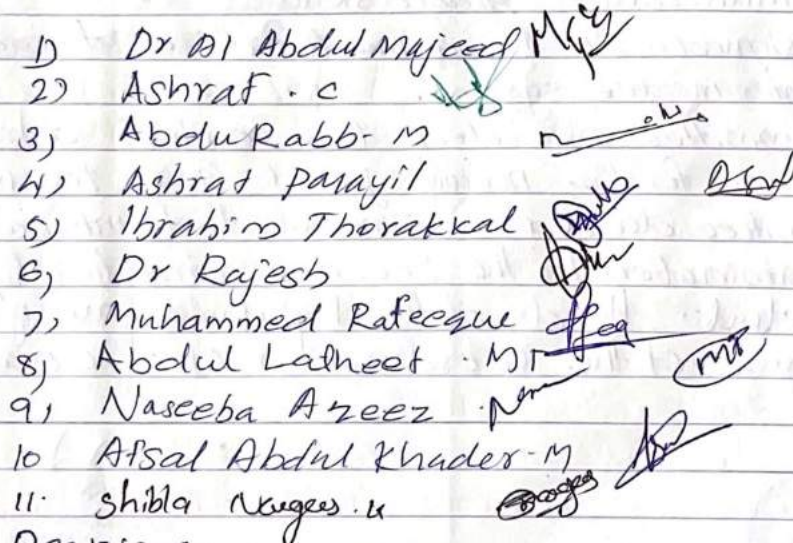 1) Dr Al Abdul Majeed
2) Ashraf . C
3) Abdu Rabb - M
4) Ashraf Parayil
5) Ibrahim Thorakkal
6) Dr Rajesh
7) Muhammed Rafeeque
8) Abdul Latheef . MT MT
9) Naseeba Azeez
10 Afsal Abdul Khader - M
11. Shibla Nargees . K